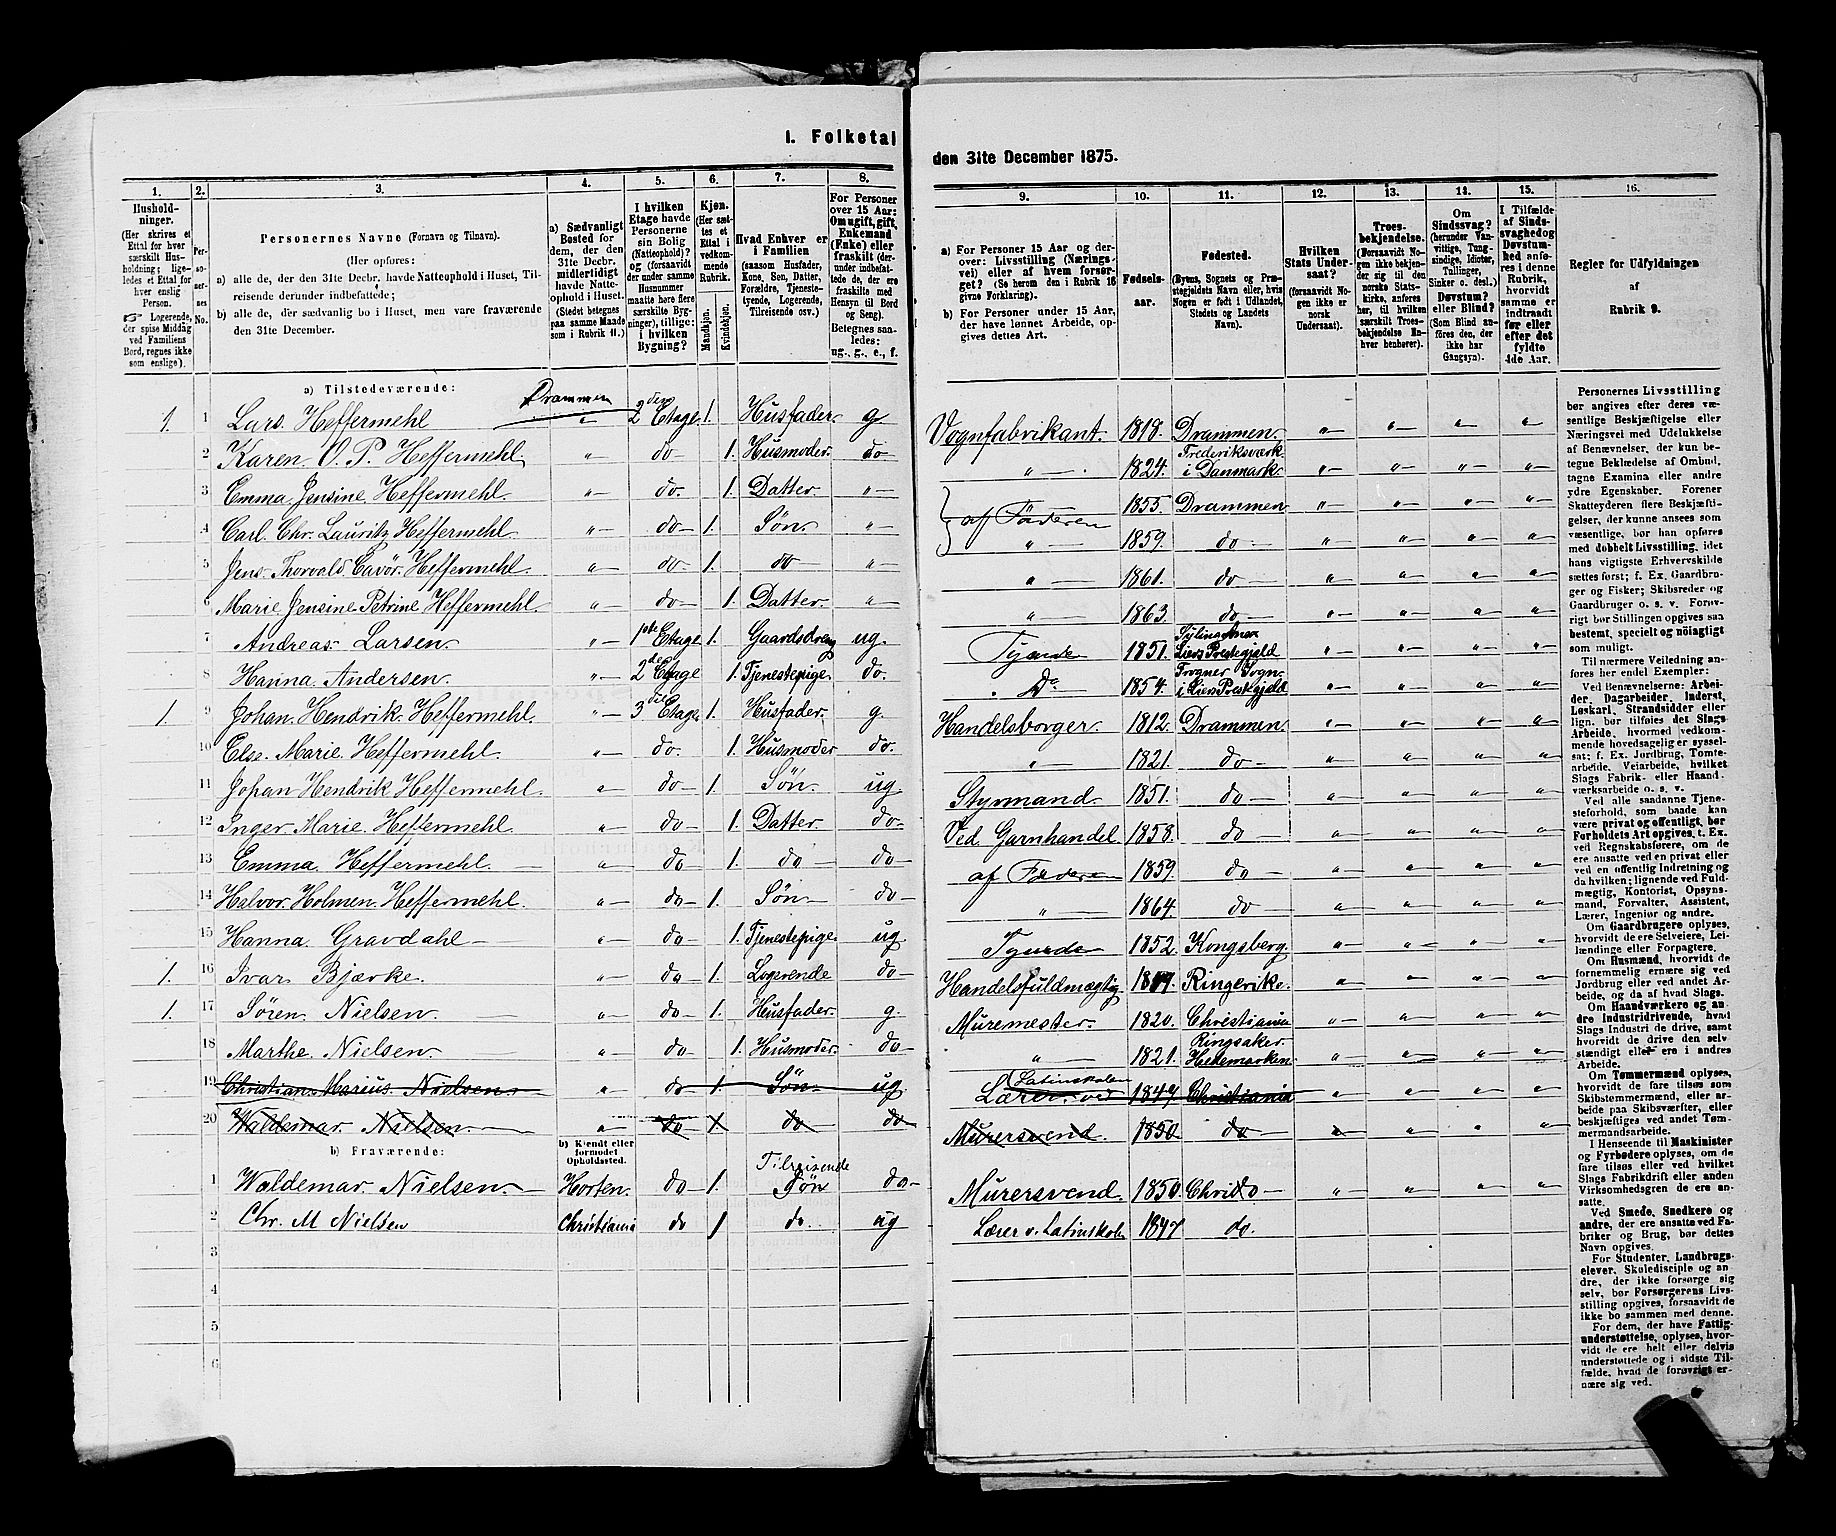 I. Folketal
den 31te December 1875.
1.
2.
3.
4.
5.
6.
7.
8.
Husholdninger.
(Her skrives et Ettal for hver særskilt Husholdning; ligeledes et Ettal for hver enslig Person.
☞ Logerende, der spise Middag ved Familiens Bord, regnes ikke som enslige).
Personernes No.
Personernes Navne (Fornavn og Tilnavn).
(Her opføres:
a) alle de, der den 31te Decbr. havde Natteophold i Huset, Tilreisende derunder indbefattede;
b) alle de, der sædvanlig bo i Huset, men vare fraværende den 31te December.
a) Sædvanligt Bosted for dem, der den 31te Decbr. midlertidigt havde Natteophold i Huset. (Stedet betegnes paa samme Maade som i Rubrik 11.)
I hvilken Etage havde Personerne sin Bolig (Natteophold)? og (forsaavidt der under samme Husnummer maatte høre flere særskilte Bygninger), tillige: i hvilken Bygning?
Kjøn. (Her sættes et Ettal i vedkommende Rubrik.
Mandkjøn.
Kvindekjøn.
Hvad Enhver er i Familien
(saasom Husfader, Kone, Søn, Datter, Forældre, Tjenestetyende, Logerende, Tilreisende osv.)
For Personer over 15 Aar: Om ugift, gift, Enkemand (Enke) eller fraskilt (derunder indbefattede de, ere fraskilte med Hensyn til Bord og Seng).
Betegnes saaledes: ug., g., e., f.
a) Tilstedeværende:
1. 1 Lars. Heffermehl Drammen 2den Etage 1. Husfader. g
2 Karen. O. P. Heffermehl. „ do 1. Husmoder. do
3 Emma. Jensine. Heffermehl. „ do. 1. Datter. „
4 Carl. Chr. Lauritz Heffermehl. „ do 1. Søn. „
5 Jens. Thorvald. Heffermehl. „ do 1. do „
6 Marie. Jensine. Petrine Heffermehl. „ do 1. Datter. „
7 Andreas. Larsen. „ 1ste Etage 1. Gaardsdreng ug.
8 Hanna. Andersen. „ 2den Etage 1. Tjenestepige. do.
1. 9 Johan. Hendrik. Heffermehl. „ 3die Etage 1. Husfader. g.
10 Else. Marie. Heffermehl. „ do. 1. Husmoder do.
11 Johan Hendrik Heffermehl. „ do 1. Søn. ug
12 Inger. Marie. Heffermehl. „ do 1. Datter. do
13 Emma. Heffermehl. „ do 1. do do
14 Halvor. Holmen. Heffermehl. „ do 1. Søn do
15 Hanna. Gravdahl „ do 1. Tjenestepige. ug.
1. 16 Ivar. Bjærke. „ do 1. Logerende do
1. 17 Søren. Nielsen. „ do 1. Husfader. g.
18 Marthe. Nielsen. „ do 1. Husmoder. do
19 Christian. Marius. Nielsen. „ do 1. Søn ug
20 Waldemar Nielsen. „ do 1. do do
b) Fraværende:
b) Kjendt eller formodet Opholdssted.
1 Waldemar. Nielsen. Horten. do 1. Tilreisende Søn do
2 Chr. M Nielsen Christiania do 1 do. ug
3
4
5
6
9.
10.
11.
12.
13.
14.
15.
16.
a) For Personer 15 Aar og derover: Livsstilling (Næringsvei) eller af hvem forsørget? (Se herom den i Rubrik 16 givne Forklaring).
b) For Personer under 15 Aar, der have lønnet Arbeide, opgives dettes Art.
Fødselsaar.
Fødested.
(Byens, Sognets og Præstegjeldets Navn eller, hvis Nogen er født i Udlandet, Stedets og Landets Navn).
Hvilken Stats Undersaat?
(forsaavidt Nogen ikke er norsk Undersaat).
Troesbekjendelse.
(Forsaavidt Nogen ikke bekjender sig til den norske Statskirke, anføres her, til hvilken særskilt Troesbekjendelse Enhver henhører).
Om Sindssvag? (herunder Vanvittige, Tungsindige, Idioter, Tullinger, Sinker o. desl.) Døvstum? eller Blind? (Som Blind anføres den, der ikke har Gangsyn).
I Tilfælde af Sindssvaghed og Døvstumhed anføres i denne Rubrik, hvorvidt samme er indtraadt før eller efter det fyldte 4de Aar.
Regler for Udfyldningen af Rubrik 9.
Vognfabrikant. 1818. Drammen. „ „ „ „
„ 1824. Frederiksværk i Danmark. „ „ „ „
af Faderen 1855. Drammen „ „ „ „
„ 1859. do „ „ „ „
„ 1861. do „ „ „ „
„ 1863. do „ „ „ „
Tyende 1851. Liers Prestegjeld „ „ „ „
Do 1854. Frogner Sogn. i Liers Prestegjeld „ „ „ „
Handelsborger. 1812. Drammen. „ „ „ „
„ 1821. do „ „ „ „
Styrmand. 1851. do „ „ „ „
Ved Garnhandel 1858. do „ „ „ „
af Faderen 1859. do „ „ „ „
„ 1864. do „ „ „ „
Tyende 1852. Kongsberg. „ „ „ „
Handelsfuldmægtig Ringerike. „ „ „ „
Muremester. 1820. Christiania „ „ „ „
„ 1821. Ringsaker. Hedemarken. „ „ „ „
Lærer. ved Latinskolen 1847 Christiania „ „ „ „
Murersvend. 1850. do „ „ „ „
Murersvend. 1850. Chri do „ „ „ „
Lærer v. Latinskole 1847 do.
Personernes Livsstilling bør angives efter deres væsentlige Beskjæftigelse eller Næringsvei med Udelukkelse af Benævnelser, der kun betegne Beklædelse af Ombud, tagne Examina eller andre ydre Egenskaber. Forener Skatteyderen flere Beskjæftigelser, der kunne ansees som væsentlige, bør han opføres med dobbelt Livsstilling, idet hans vigtigste Erhvervskilde sættes først; f. Ex. Gaardbruger og Fisker; Skibsreder og Gaardbruger o. s. v. Forøvrigt bør Stillingen opgives saa bestemt, specielt og nøiagtigt som muligt.
Til nærmere Veiledning anføres her endel Exempler:
Ved Benævnelserne: Arbeider, Dagarbeider, Inderst, Løskarl, Strandsidder eller lign. bør tilføies det Slags Arbeide, hvormed vedkommende hovedsagelig er sysselsat; f. Ex. Jordbrug, Tomtearbeide, Veiarbeide, hvilket Slags Fabrik- eller Haandværksarbeide o. s. v.
Ved alle saadanne Tjenesteforhold, som baade kan være privat og offentligt, bør Forholdets Art opgives, t. Ex. ved Regnskabsførere, om de ere ansatte ved en privat eller ved en offentlig Indretning og da hvilken; lignende ved Fuldmægtig, Kontorist, Opsynsmand, Forvalter, Assistent, Lærer, Ingeniør og andre.
Om Gaardbrugere oplyses, hvorvidt de ere Selveiere, Leilændinge eller Forpagtere.
Om Husmænd, hvorvidt de fornemmelig ernære sig ved Jordbrug eller ved andet Arbeide, og da af hvad Slags.
Om Haandværkere og andre Industridrivende, hvad Slags Industri de drive, samt hvorvidt de drive den selvstændigt eller ere i andres Arbeide.
Om Tømmermænd oplyses, hvorvidt de fare tilsøs som Skibstømmermænd, eller arbeide paa Skibsværfter, eller beskjæftiges ved andet Tømmermandsarbeide.
I Henseende til Maskinister og Fyrbødere oplyses, om de fare tilsøs eller ved hvilket Slags Fabrikdrift eller anden Virksomhed de ere ansatte.
Ved Smede, Snedkere og andre, der ere ansatte ved Fabriker og Brug, bør dettes Navn opgives.
For Studenter, Landbrugselever, Skoledisciple og andre, der ikke forsørge sig selv, bør Forsørgerens Livsstilling opgives, forsaavidt de ikke bo sammen med denne.
For dem, der have Fattigunderstøttelse, oplyses, hvorvidt de ere helt eller delvis understøttede og i sidste Tilfælde, hvad de forøvrigt ernære sig ved.